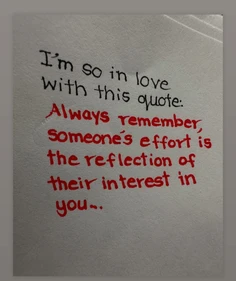 I'm so in love
with this quote:
Always remember,
someone's effort is
the reflection of
their interest in
you...